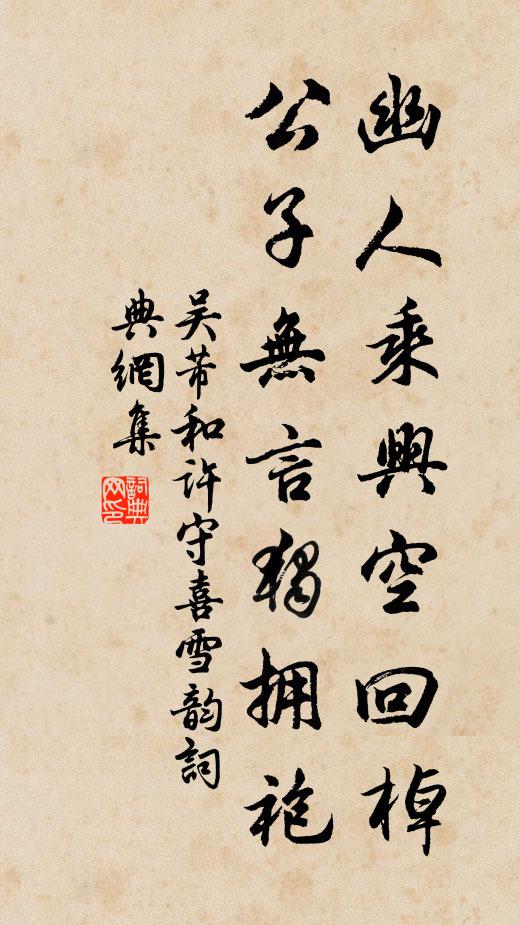 幽人乘興空回棹
公子無言獨拥袍
吴芾和許守喜雪韵詞
典網集
詞典
网印